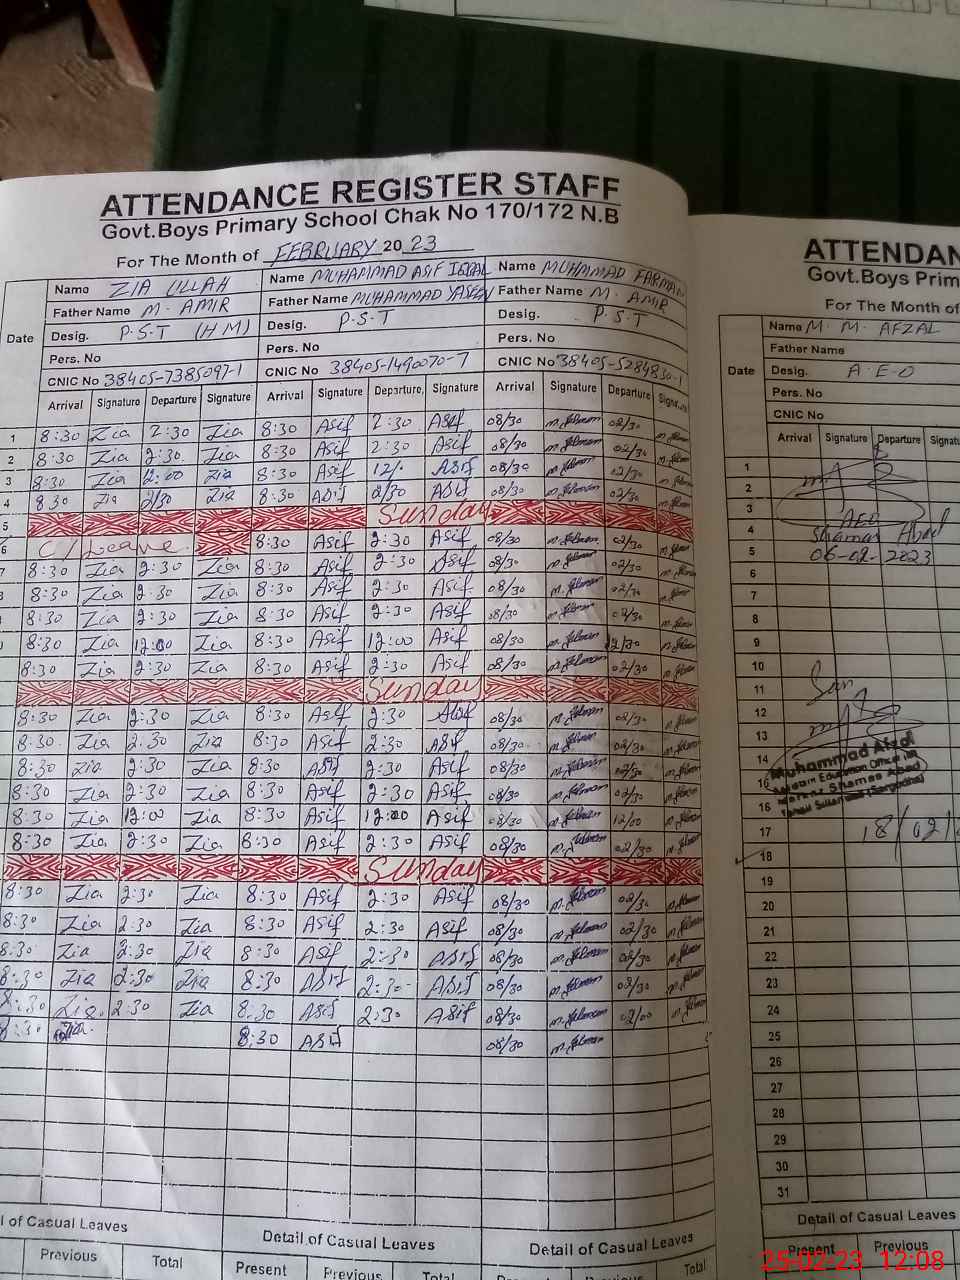 ATTENDANCE REGISTER STAFF
Govt.Boys Primary School Chak No 170/172 N.B
For The Month of FEBRUARY 2023
Date
Name ZIA ULLAH
Father Name M. AMIR
Desig. P.S.T (HM)
Pers. No
CNIC No 38405-7385097-1
Name MUHAMMAD ASIF IQBAL
Father Name MUHAMMAD YASEEN
Desig. P.S.T
Pers. No
CNIC No 38405-1490070-7
Name MUHMMAD FARMAN
Father Name M. AMIR
Desig. P.S.T
Pers. No
CNIC No 38405-5284830-1
Arrival Signature Departure Signature Arrival Signature Departure, Signature Arrival Signature Departure Signature
1 8:30 Zia 2:30 Zia 8:30 Asif 2:30 Asif 08/30 02/30
2 8:30 Zia 2:30 Zia 8:30 Asif 2:30 Asif 08/30 02/30
3 8:30 Zia 12:00 Zia 8:30 Asif 12/. Asif 08/30 12/30
4 8:30 Zia 2/30 Zia 8:30 Asif 2/30 Asif 08/30 02/30
5 Sunday
6 C/Leave 8:30 Asif 2:30 Asif 08/30 02/30
7 8:30 Zia 2:30 Zia 8:30 Asif 2:30 Asif 08/30 02/30
8:30 Zia 2:30 Zia 8:30 Asif 2:30 Asif 08/30 02/30
8:30 Zia 2:30 Zia 8:30 Asif 2:30 Asif 08/30 02/30
8:30 Zia 12:00 Zia 8:30 Asif 12:00 Asif 08/30
8:30 Zia 2:30 Zia 8:30 Asif 2:30 Asif 08/30 02/30
Sunday
8:30 Zia 2:30 Zia 8:30 Asif 2:30 Asif 08/30 02/30
8:30 Zia 2:30 Zia 8:30 Asif 2:30 Asif 08/30 02/30
8:30 Zia 2:30 Zia 8:30 Asif 2:30 Asif 08/30 02/30
8:30 Zia 2:30 Zia 8:30 Asif 2:30 Asif 08/30 02/30
8:30 Zia 12:00 Zia 8:30 Asif 12:00 Asif 08/30 12/00
8:30 Zia 2:30 Zia 8:30 Asif 2:30 Asif 08/30 02/30
Sunday
8:30 Zia 2:30 Zia 8:30 Asif 2:30 Asif 08/30 02/30
8:30 Zia 2:30 Zia 8:30 Asif 2:30 Asif 08/30 02/30
8:30 Zia 2:30 Zia 8:30 Asif 2:30 Asif 08/30 02/30
8:30 Zia 2:30 Zia 8:30 Asif 2:30 Asif 08/30 02/30
8:30 Zia 2:30 Zia 8:30 Asif 2:30 Asif 08/30 02/00
8:30 Zia 8:30 Asif 08/30
l of Casual Leaves
Detail of Casual Leaves
Detail of Casual Leaves
Previous Total Present Previous Total Previous Total
ATTENDAN
Govt.Boys Prim
For The Month of
Date
Name M. M. AFZAL
Father Name
Desig. A.E.O
Pers. No
CNIC No
Arrival Signature Departure Signatu
1
2
3
4
5
6
7
8
9
10
11
12
13
14
16
17
18
19
20
21
22
23
24
25
26
27
28
29
30
31
AEO
Shamas Abad
06-02-2023
Muhammad Afzal
18/02/
Detail of Casual Leaves
Present Previous
25-02-23 12:08